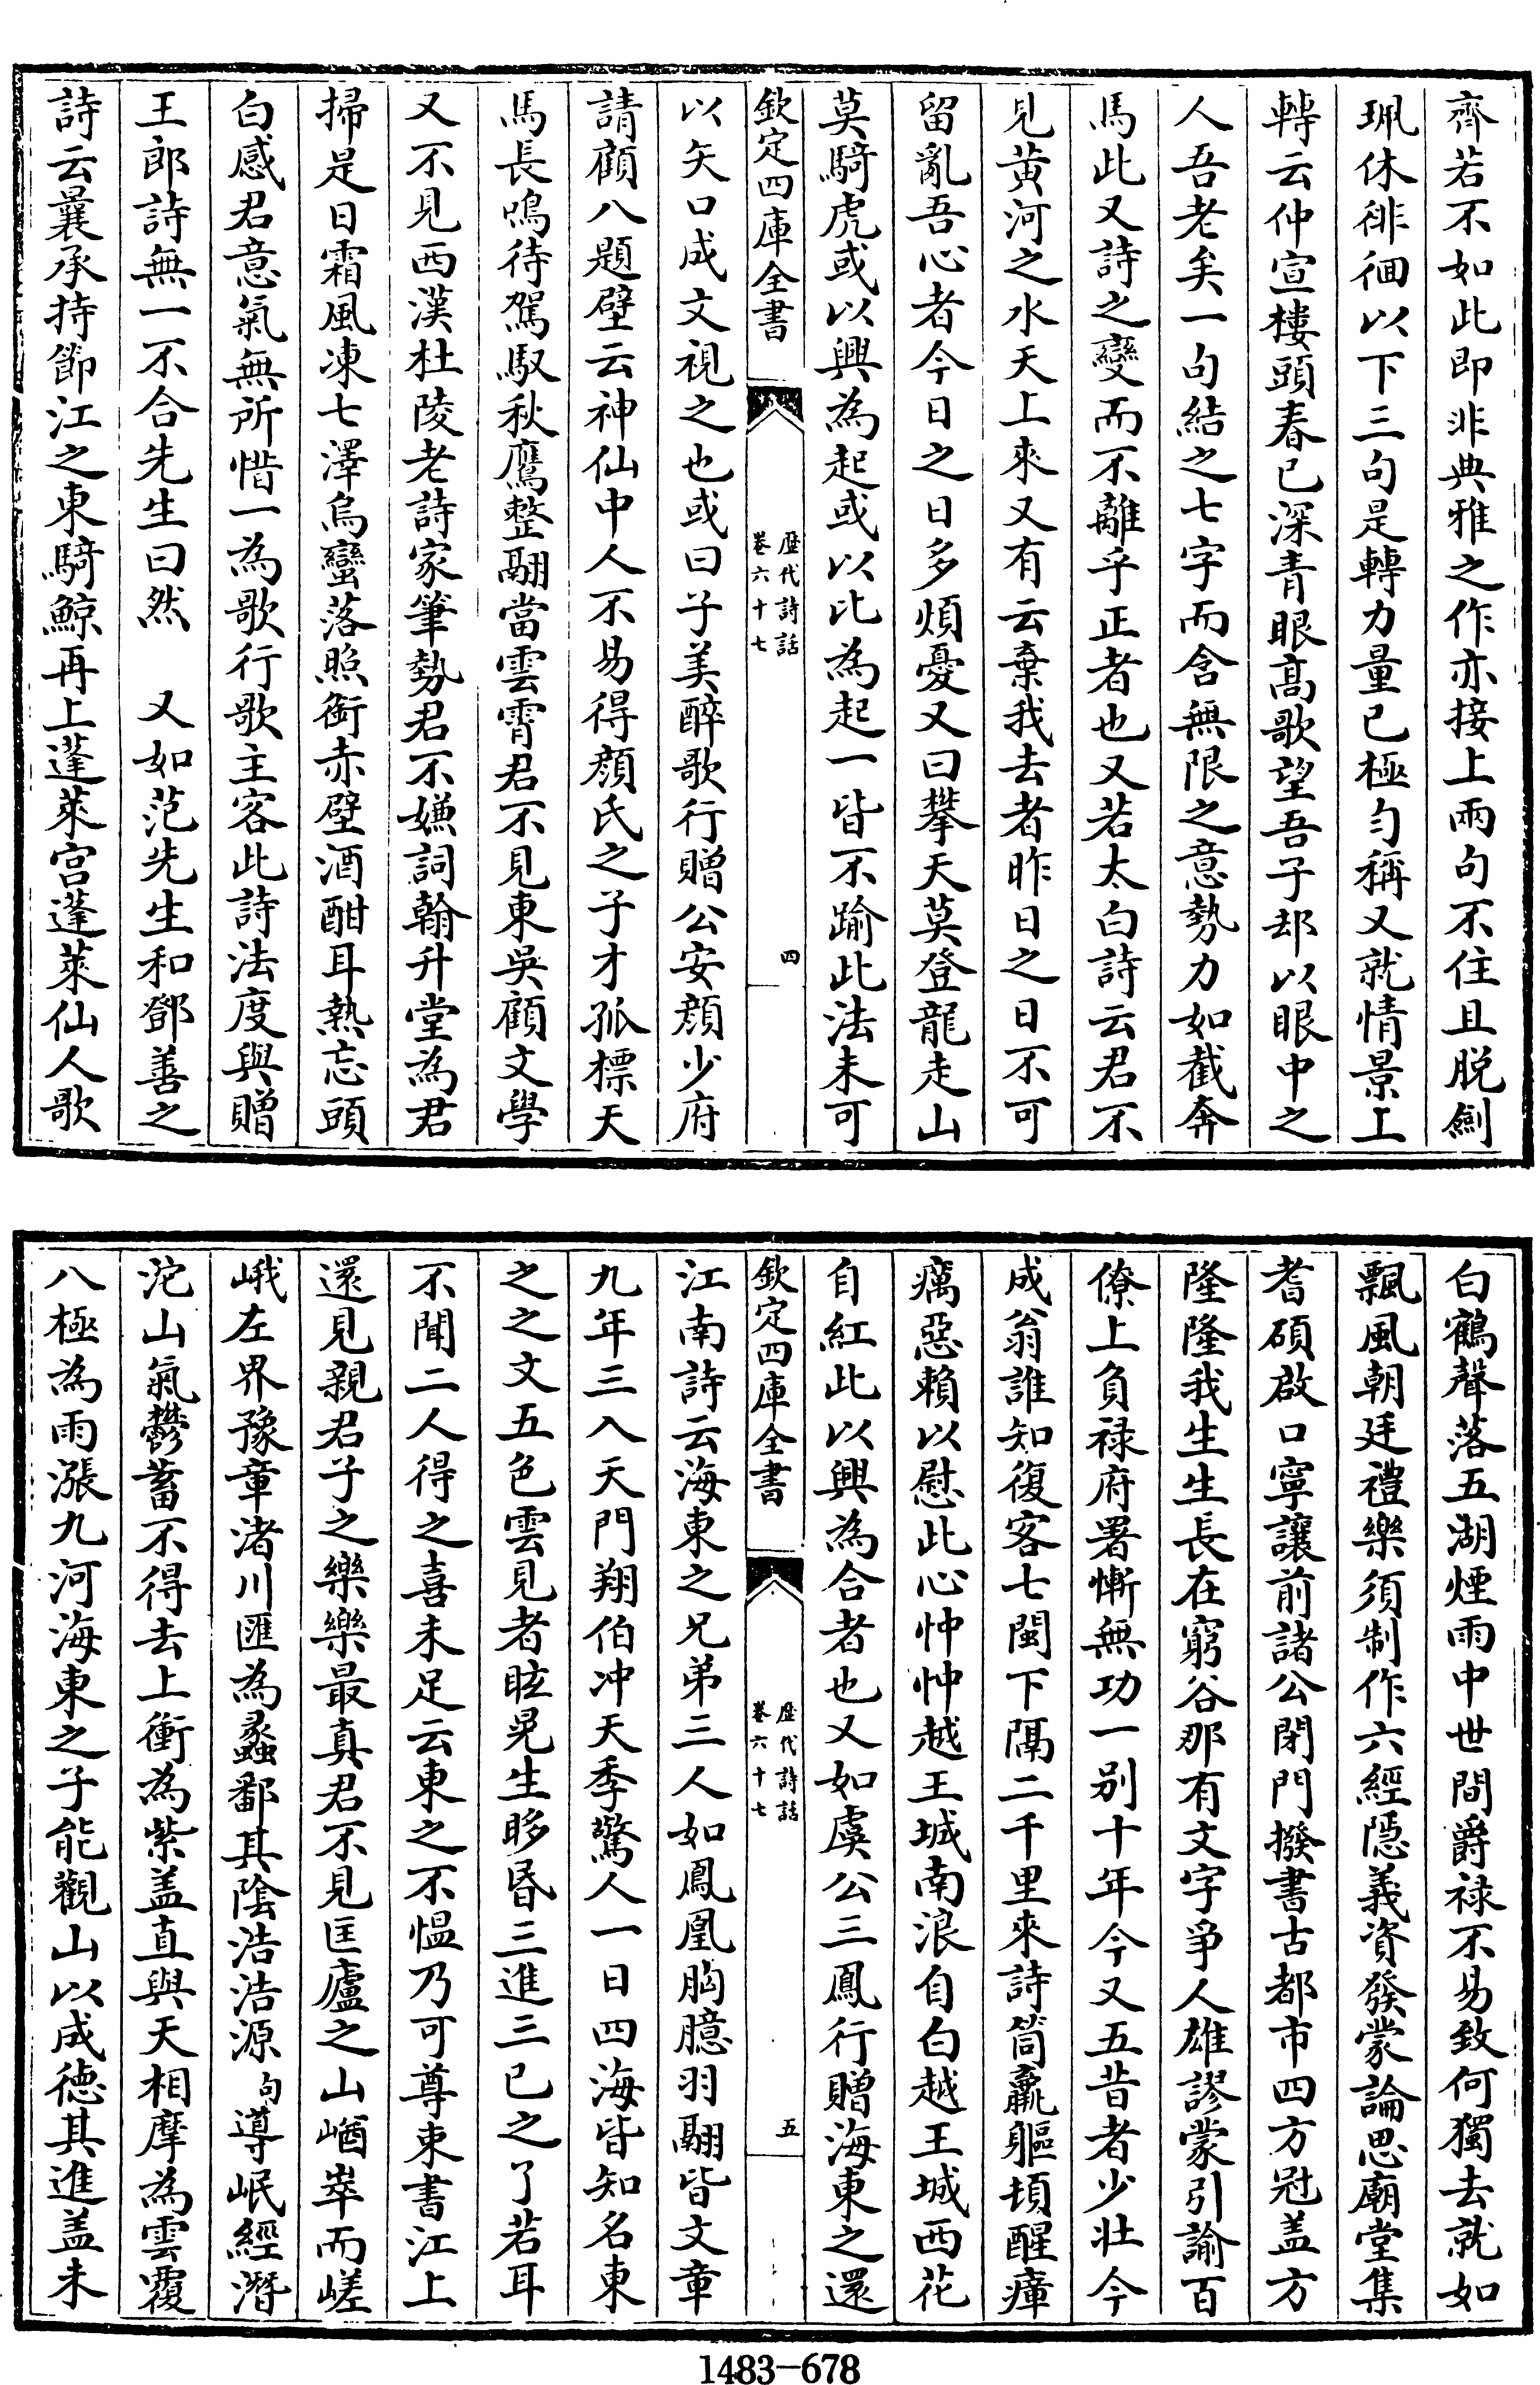 齊若不如此即非典雅之作亦接上兩句不住且脱劍
珮休徘徊以下三句是轉力量已極匀稱又就情景上
轉云仲宣樓頭春已深青眼髙歌望吾子却以眼中之
人吾老矣一句結之七字而含無限之意勢力如截奔
馬此又詩之變而不離乎正者也又若太白詩云君不
見黄河之水天上來又有云棄我去者昨日之日不可
留亂吾心者今日之日多煩憂又曰攀天莫登龍走山
莫騎虎或以興為起或以比為起一皆不踰此法未可
欽定四庫全書
歴代詩話
卷六十七
四
以矢口成文視之也或曰子美醉歌行贈公安顔少府
請顧八題壁云神仙中人不易得顔氏之子才孤標天
馬長鳴待駕馭秋鷹整翮當雲霄君不見東吳顧文學
又不見西漢杜陵老詩家筆勢君不嫌詞翰升堂為君
掃是日霜風凍七澤烏蠻落照銜赤壁酒酣耳熱忘頭
白感君意氣無所惜一為歌行歌主客此詩法度與贈
王郎詩無一不合先生曰然　又如范先生和鄧善之
詩云曩承持節江之東騎鯨再上蓬萊宫蓬萊仙人歌
白鶴聲落五湖煙雨中世間爵禄不易致何獨去就如
飄風朝廷禮樂須制作六經隠義資發蒙論思廟堂集
耆碩啟口寧讓前諸公閉門撥書古都市四方冠盖方
隆隆我生生長在窮谷那有文字爭人雄謬蒙引諭百
僚上負禄府署慚無功一别十年今又五昔者少壯今
成翁誰知復客七閩下隔二千里來詩筒羸軀頓醒瘴
癘惡賴以慰此心忡忡越王城南浪自白越王城西花
自紅此以興為合者也又如虞公三鳳行贈海東之還
欽定四庫全書
歴代詩話
卷六十七
五
江南詩云海東之兄弟三人如鳳凰胸臆羽翮皆文章
九年三入天門翔伯冲天季驚人一日四海皆知名東
之之文五色雲見者眩晃生眵昏三進三已之了若耳
不聞二人得之喜未足云東之不愠乃可尊東書江上
還見親君子之樂樂最真君不見匡廬之山崷崒而嵯
峨左界豫章渚川匯為蠡鄱其陰浩浩源句導岷經潛
沱山氣鬱蓄不得去上衝為紫盖直與天相摩為雲覆
八極為雨漲九河海東之子能觀山以成德其進盖未
1483-678